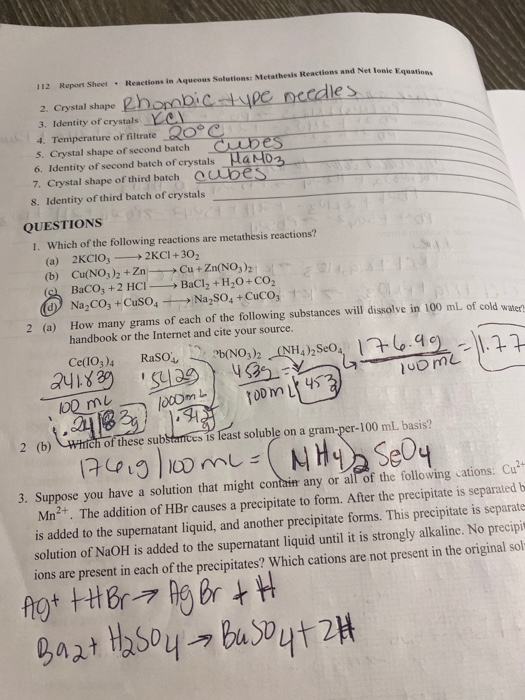 112 Report Sheet • Reactions in Aqueous Solutions: Metathesis Reactions and Net Ionic Equations
2. Crystal shape Rhombic-type needles
3. Identity of crystals KCl
4. Temperature of filtrate 20°C
5. Crystal shape of second batch cubes
6. Identity of second batch of crystals NaNO3
7. Crystal shape of third batch cubes
8. Identity of third batch of crystals
QUESTIONS
1. Which of the following reactions are metathesis reactions?
(a) 2KClO₃ ⟶ 2KCl + 3O₂
(b) Cu(NO₃)₂ + Zn ⟶ Cu + Zn(NO₃)₂
(c) BaCO₃ + 2 HCl ⟶ BaCl₂ + H₂O + CO₂
(d) Na₂CO₃ + CuSO₄ ⟶ Na₂SO₄ + CuCO₃
2 (a) How many grams of each of the following substances will dissolve in 100 mL of cold water?
handbook or the Internet and cite your source.
Ce(IO₃)₄ RaSO₄ Pb(NO₃)₂ (NH₄)₂SeO₄ 176.9g = 1.77
100 mL
241.83g 453g
100 mL 1000mL 100mL 453
2 (b) Which of these substances is least soluble on a gram-per-100 mL basis?
176.9/100 mL = (NH4)2 SeO4
3. Suppose you have a solution that might contain any or all of the following cations: Cu²⁺
Mn²⁺. The addition of HBr causes a precipitate to form. After the precipitate is separated b
is added to the supernatant liquid, and another precipitate forms. This precipitate is separate
solution of NaOH is added to the supernatant liquid until it is strongly alkaline. No precipi
ions are present in each of the precipitates? Which cations are not present in the original sol
Ag+ + HBr → AgBr + H
Ba2+ H2SO4 → BaSO4 + 2H